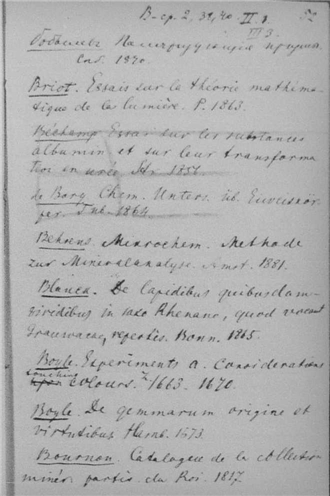 B-ср. 2, 39, 40. II.3 52
III 3.
Спб. 1870.
Briot. Essais sur la théorie mathéma-
tique de la lumière. P. 1863.
Béchamp Essai sur les substances
albumin et sur leur transforma
tion en urée Str. 1856.
de Bary Chem. Unters. üb. Eiweisskör-
per. Tub. 1864
Behrens. Mikrochem. Methode
zur Mineralanalyse. Amst. 1881.
Blanca. De lapidibus quibusdam
viridibus in saxo Rhenano, quod vocant
Grauwacae, repertis. Bonn. 1865.
Boyle. Experiments a. Considerations
touching colours. 1663. 1670.
Boyle. De gemmarum origine et
virtutibus Hamb. 1673.
Bournon. Catalogue de la collection
minér. partic. du Roi. 1817.